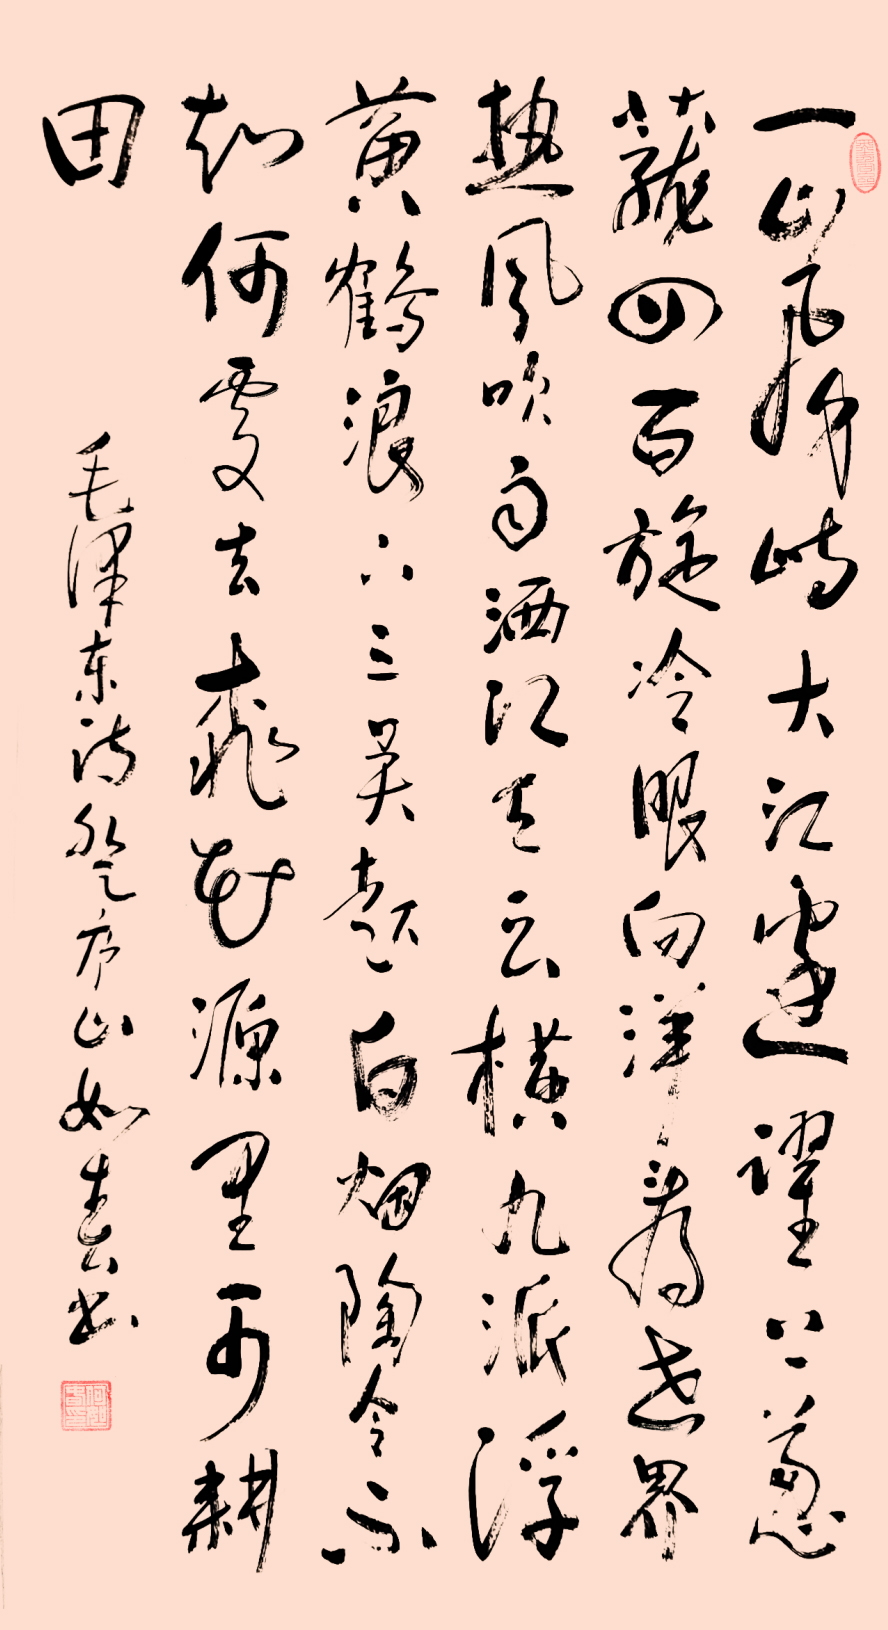 一山飛峙大江邊躍上葱
蘢四百旋冷眼向洋看世界
热風吹雨洒江天云横九派浮
黄鶴浪下三吴起白烟陶令不
知何處去桃花源里可耕
田
毛泽东诗登庐山如春书